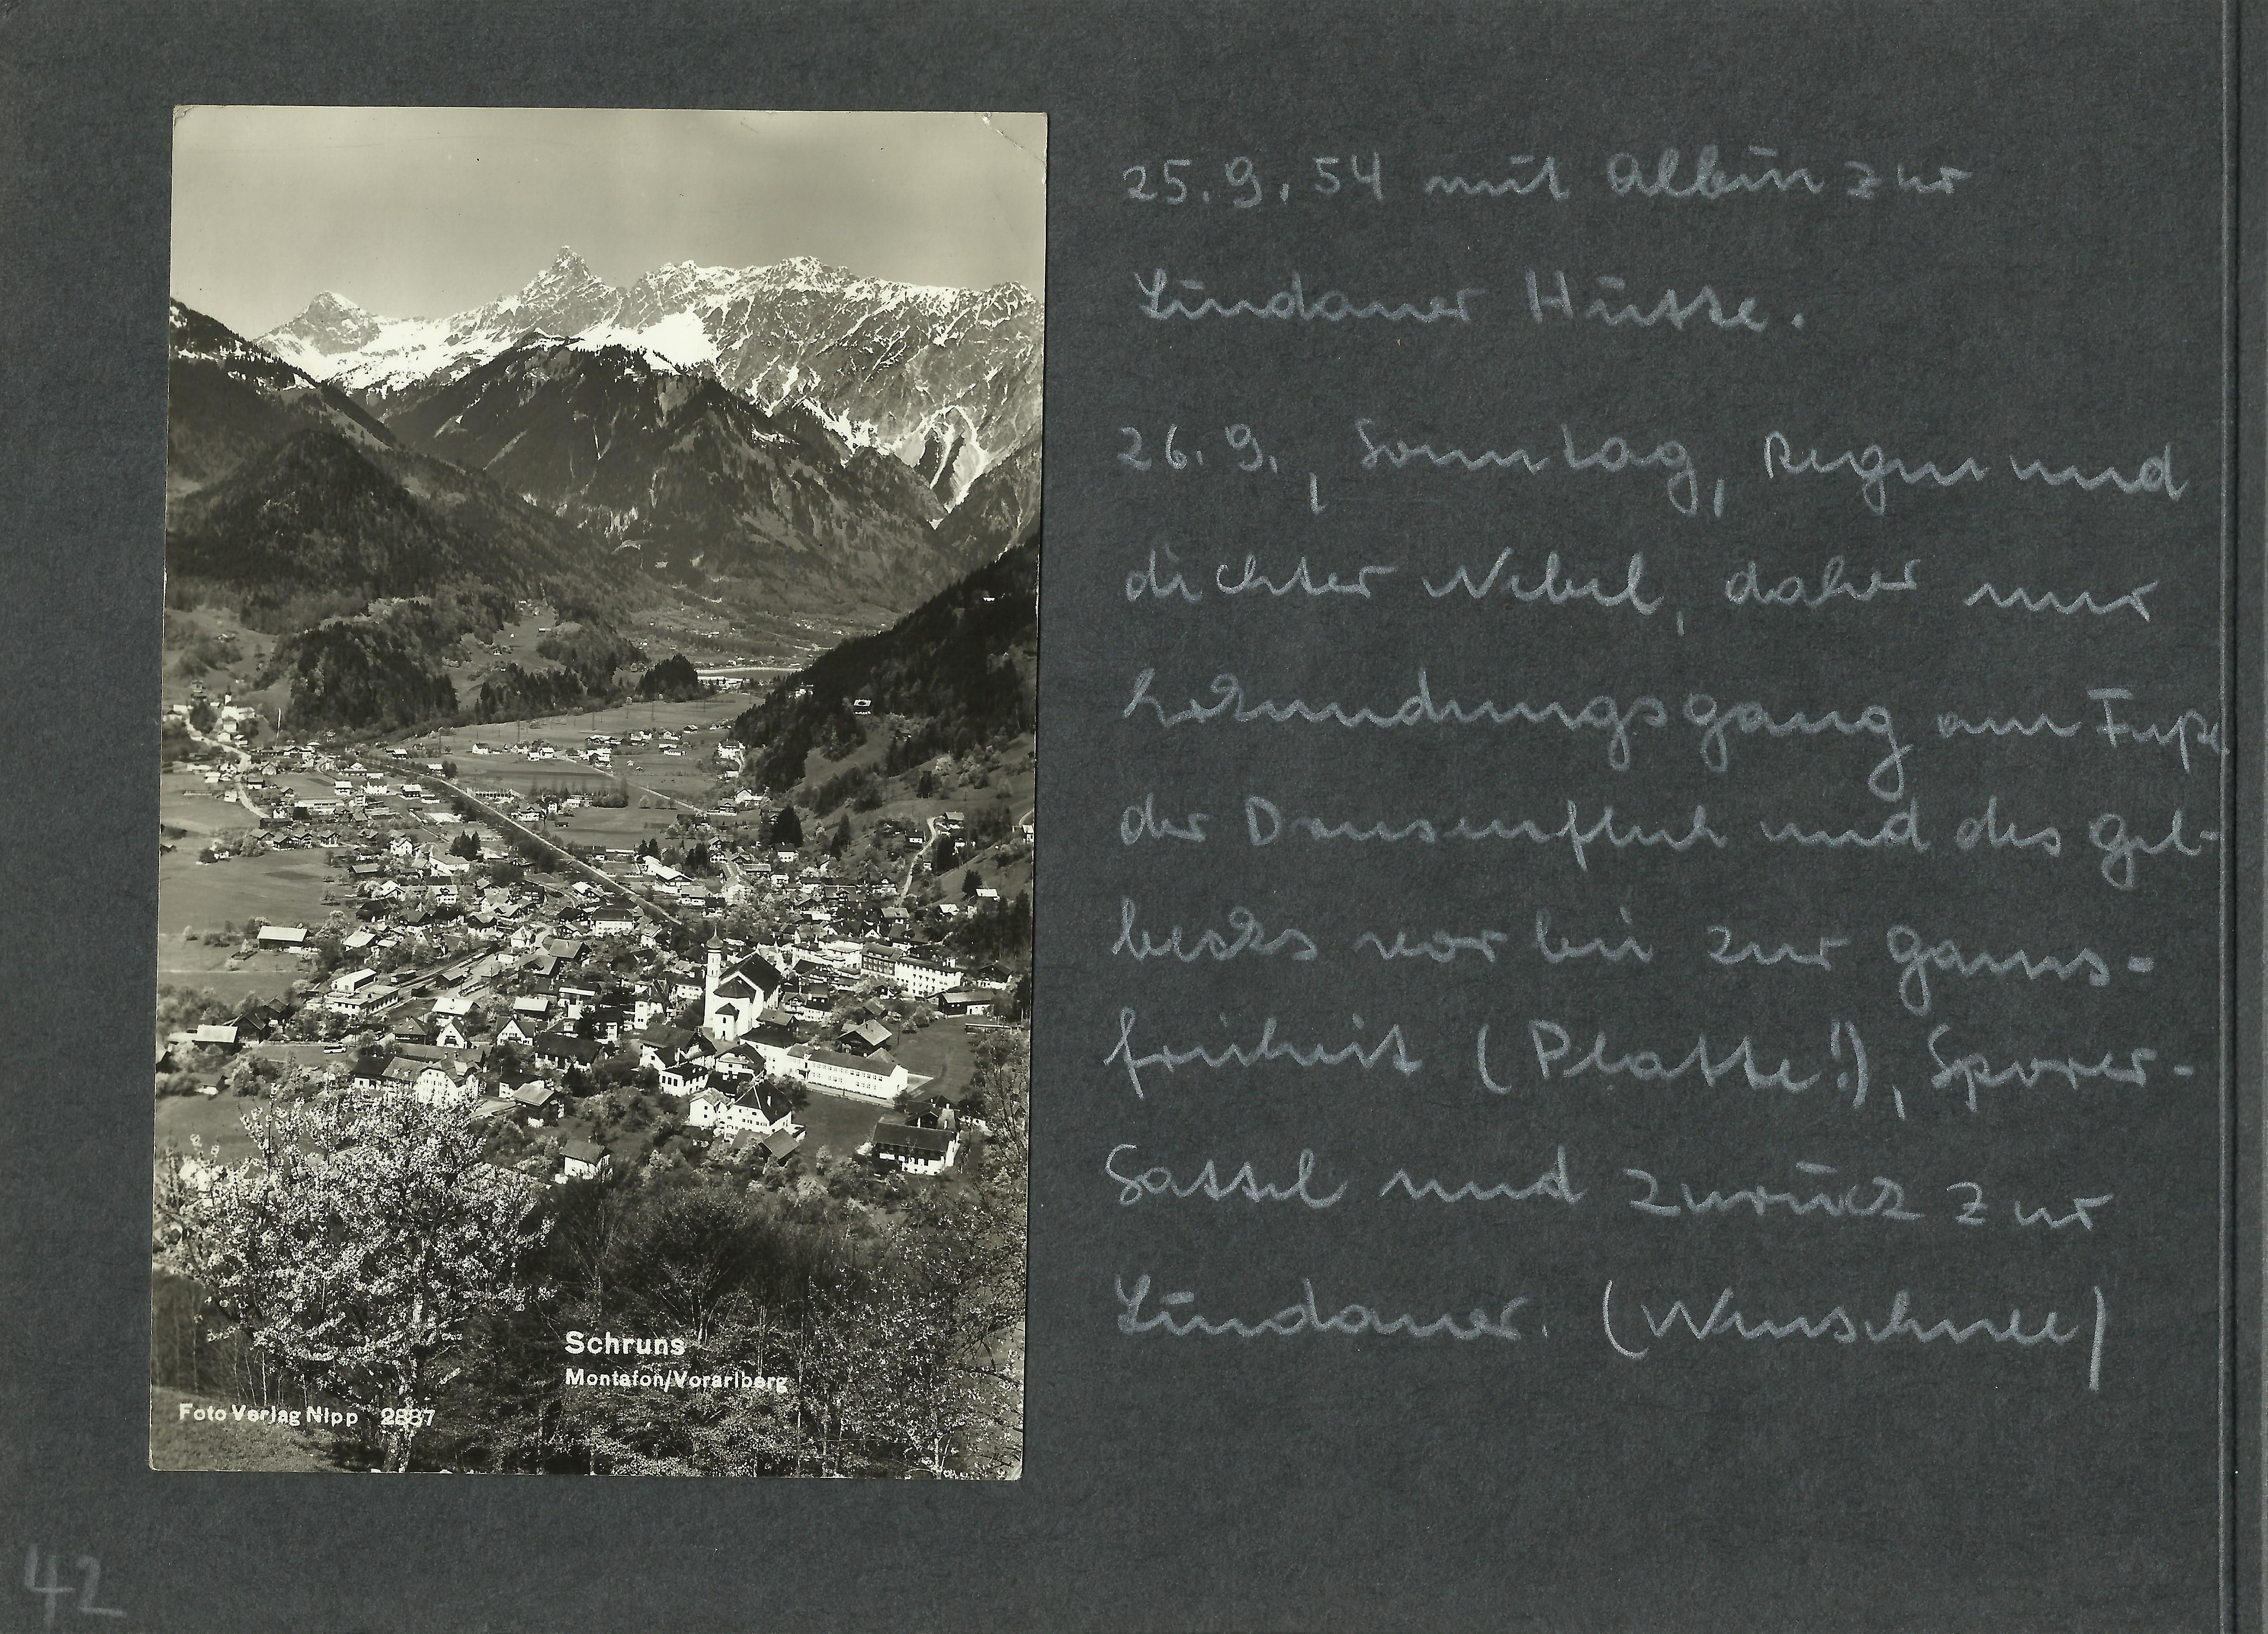 25.9.54 mit Albin zur
Lindauer Hütte.
26.9., Sonntag, Regen und
dichter Nebel, daher nur
Erkundungsgang am Fuße
der Drusenfluh und des Gel-
becks vorbei zur Gams-
freiheit (Platte!), Sporer-
Sattel und zurück zur
Lindauer. (Neuschnee)
Schruns
Montafon/Vorarlberg
Foto Verlag Nipp 2887
42